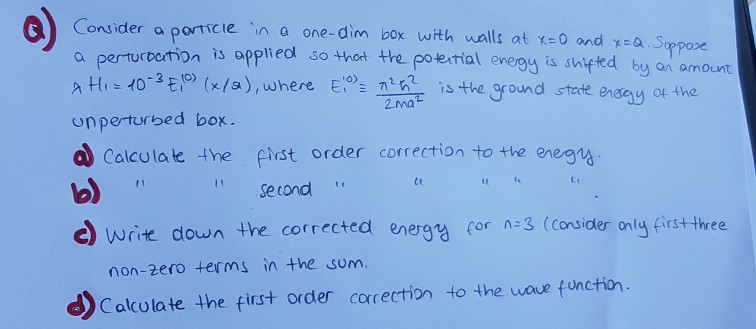 Q) Consider a particle in a one-dim box with walls at x=0 and x=a. Suppose
a perturbation is applied so that the potential energy is shifted by an amount
λH₁ = 10⁻³ E₁⁽⁰⁾ (x/a), where E₁⁽⁰⁾ ≡ π²ħ²/2ma² is the ground state energy of the
unperturbed box.
a) Calculate the first order correction to the enegy.
b) " " second " " " " " .
c) Write down the corrected energy for n=3 (consider only first three
non-zero terms in the sum.
d) Calculate the first order correction to the wave function.